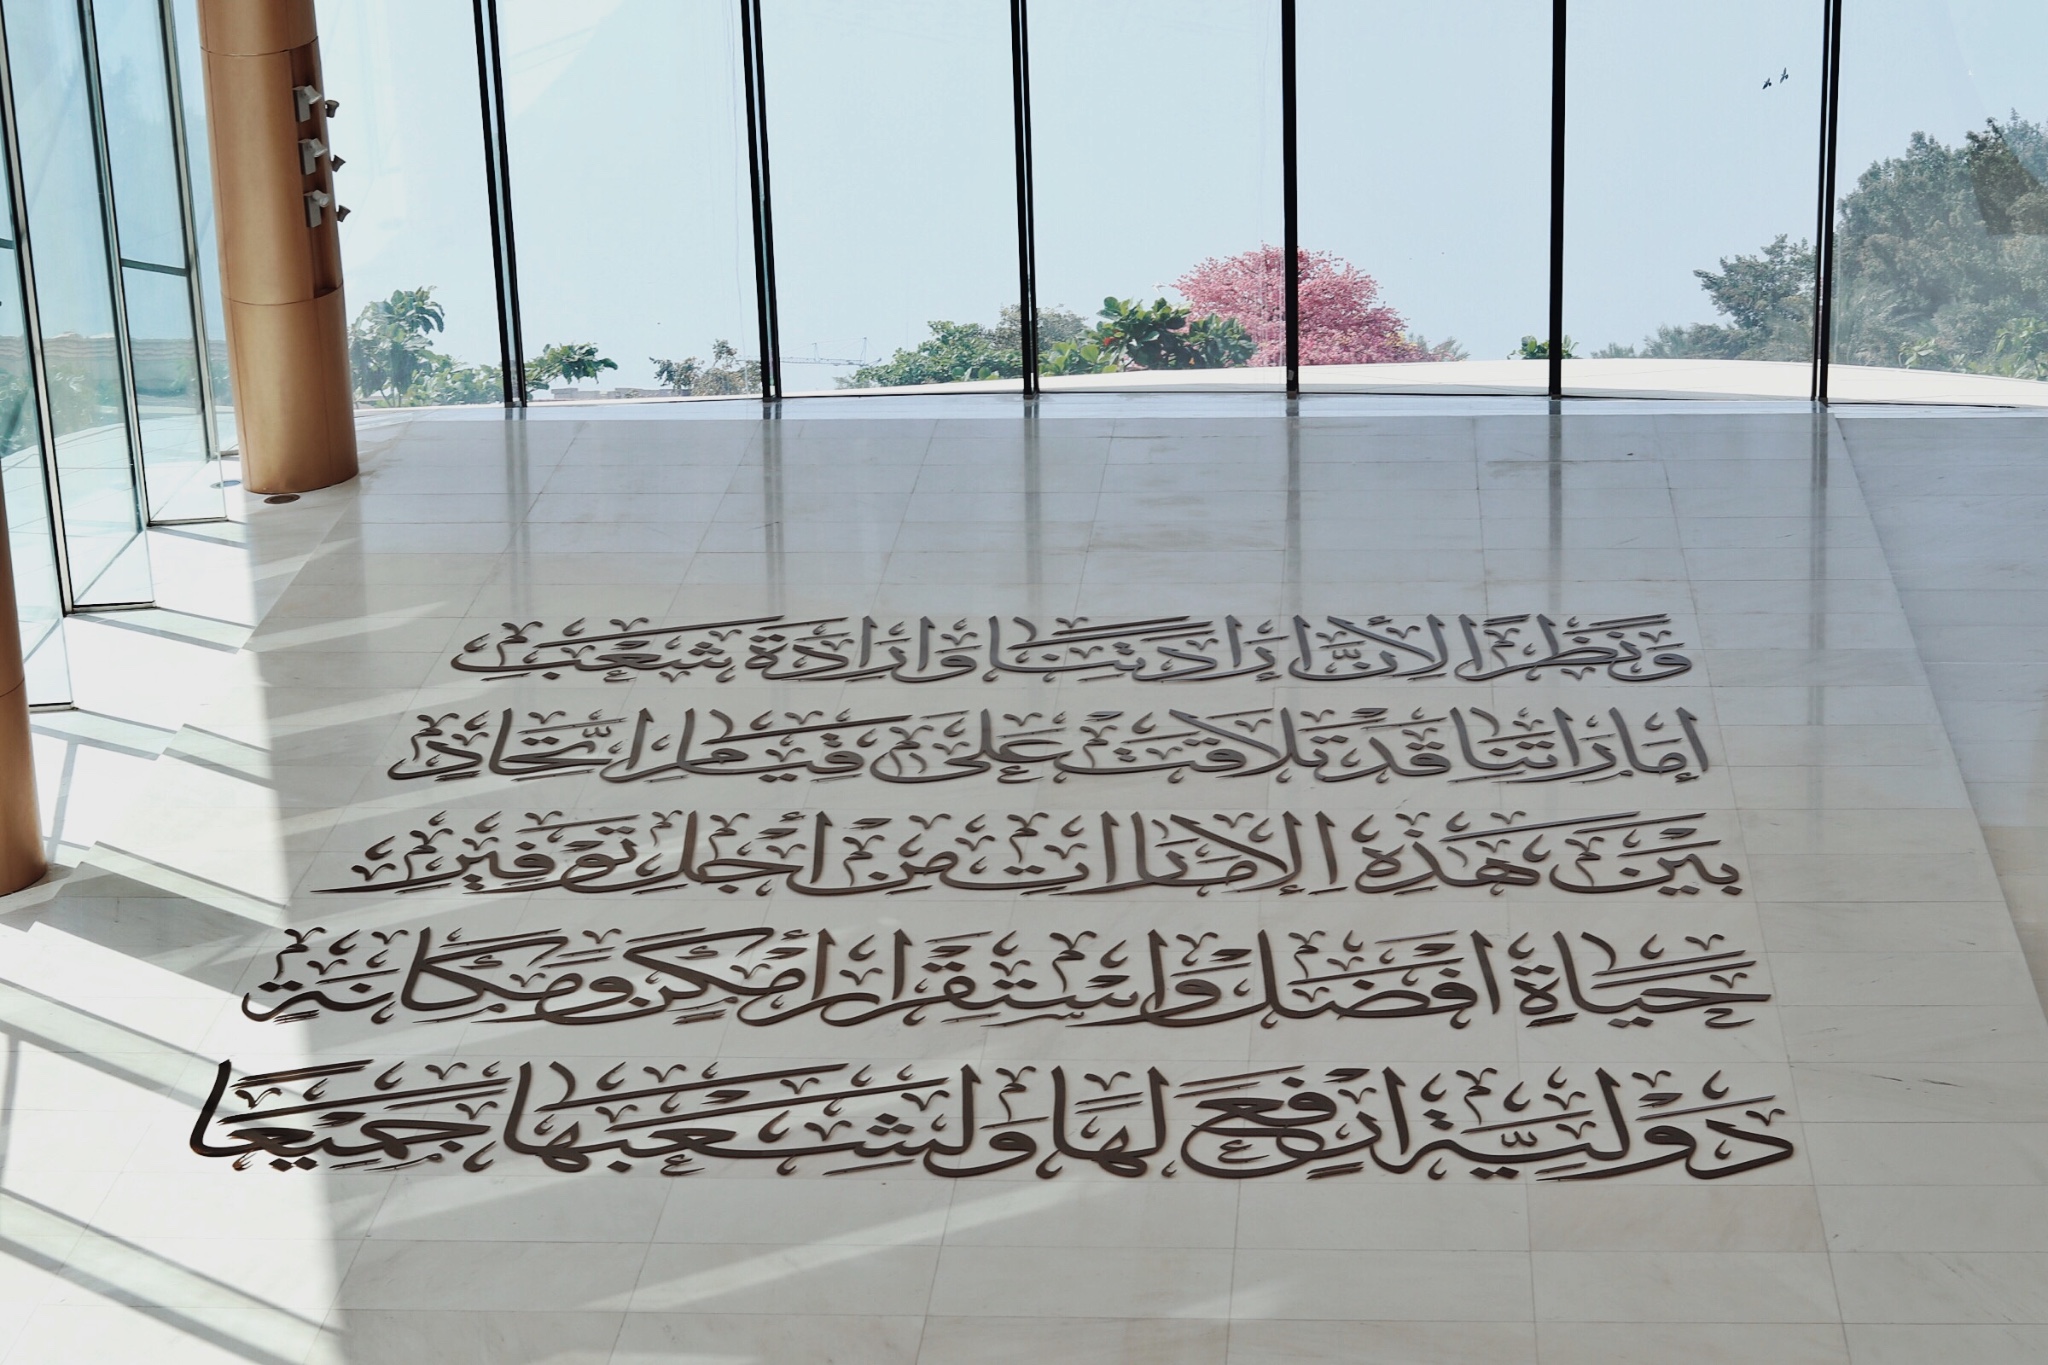 وَنَظَرًا لِأَنَّ إِرَادَتَنَا وَإِرَادَةَ شَعْبِ
إِمَارَاتِنَا قَدْ تَلَاقَتْ عَلَى قِيَامِ اتِّحَادٍ
بَيْنَ هَذِهِ الْإِمَارَاتِ مِنْ أَجْلِ تَوْفِيرِ
حَيَاةٍ أَفْضَلَ وَاسْتِقْرَارٍ أَمْكَنَ وَمَكَانَةٍ
دَوْلِيَّةٍ أَرْفَعَ لَهَا وَلِشَعْبِهَا جَمِيعًا